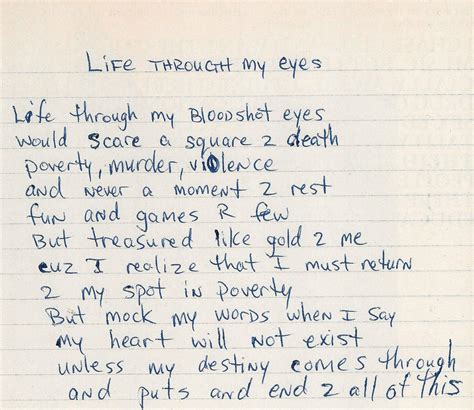 Life through my eyes
Life through my Bloodshot eyes
would scare a square 2 death
poverty, murder, violence
and never a moment 2 rest
fun and games R few
But treasured like gold 2 me
cuz I realize that I must return
2 my spot in poverty
But mock my words when I say
my heart will not exist
unless my destiny comes through
and puts and end 2 all of this